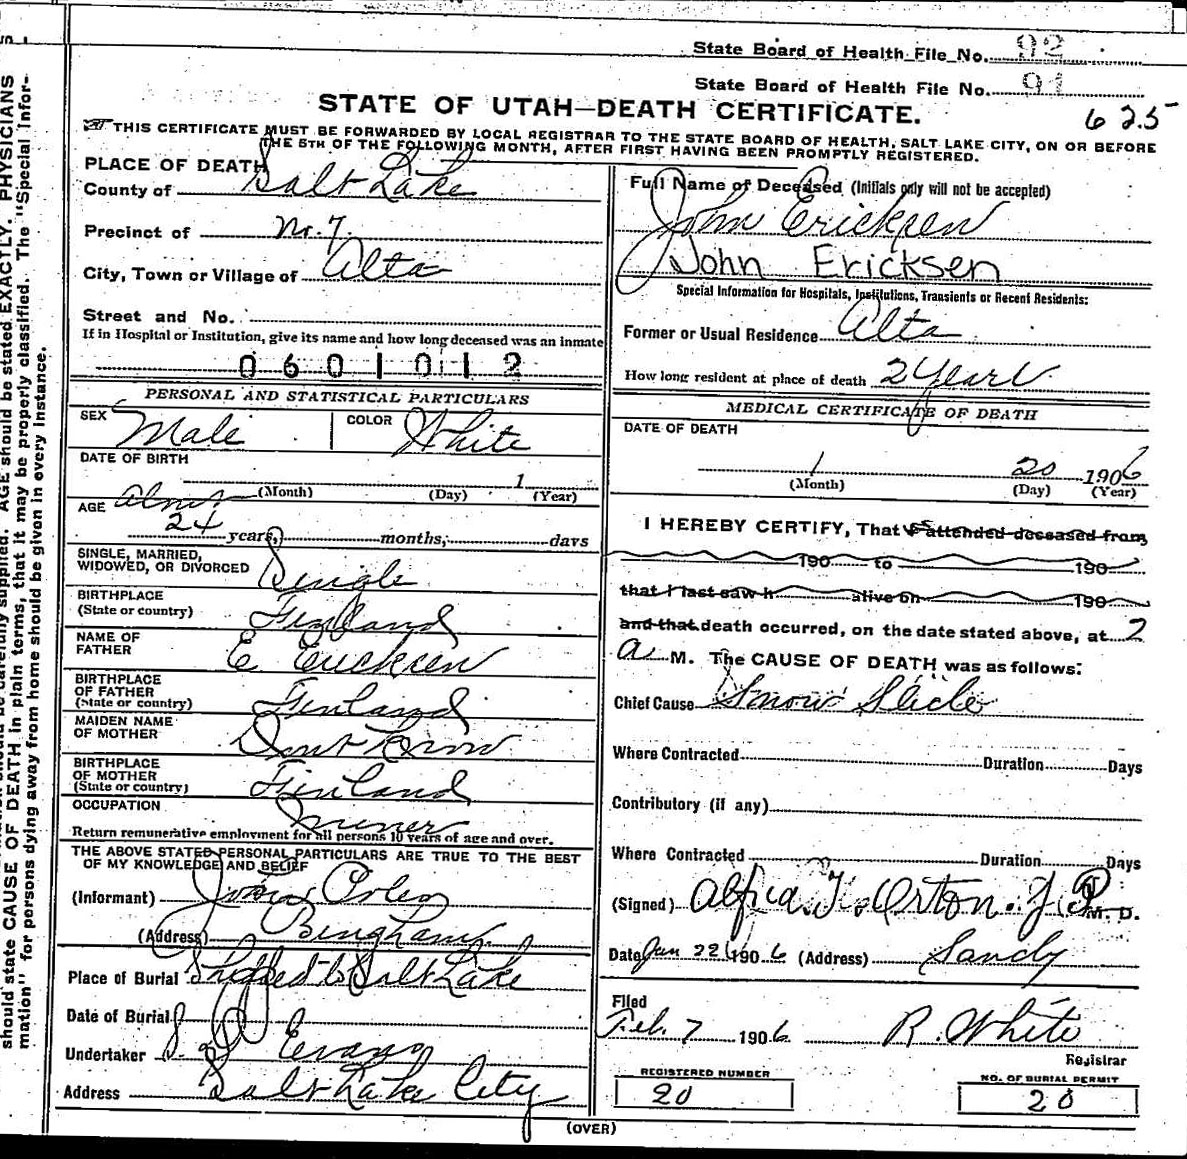 State Board of Health File No. 92
State Board of Health File No. 91
STATE OF UTAH—DEATH CERTIFICATE.
625
THIS CERTIFICATE MUST BE FORWARDED BY LOCAL REGISTRAR TO THE STATE BOARD OF HEALTH, SALT LAKE CITY, ON OR BEFORE
THE 5TH OF THE FOLLOWING MONTH, AFTER FIRST HAVING BEEN PROMPTLY REGISTERED.
PLACE OF DEATH
County of Salt Lake
Precinct of No. 7
City, Town or Village of Alta
Street and No.
If in Hospital or Institution, give its name and how long deceased was an inmate
0601012
PERSONAL AND STATISTICAL PARTICULARS
SEX Male COLOR White
DATE OF BIRTH
1
(Month) (Day) (Year)
AGE
24 years, months, days
SINGLE, MARRIED,
WIDOWED, OR DIVORCED Single
BIRTHPLACE
(State or country) Finland
NAME OF
FATHER E Ericksen
BIRTHPLACE
OF FATHER
(State or country) Finland
MAIDEN NAME
OF MOTHER Dont Know
BIRTHPLACE
OF MOTHER
(State or country) Finland
OCCUPATION Miner
Return remunerative employment for all persons 10 years of age and over.
THE ABOVE STATED PERSONAL PARTICULARS ARE TRUE TO THE BEST
OF MY KNOWLEDGE AND BELIEF
(Informant) John
(Address) Bingham
Place of Burial Shipped to Salt Lake
Date of Burial
Undertaker Evans
Address Salt Lake City
Full Name of Deceased (Initials only will not be accepted)
John Ericksen
John Ericksen
Special Information for Hospitals, Institutions, Transients or Recent Residents:
Former or Usual Residence Alta
How long resident at place of death 2 Years
MEDICAL CERTIFICATE OF DEATH
DATE OF DEATH
1 20 1906
(Month) (Day) (Year)
I HEREBY CERTIFY, That I attended deceased from
190 to 190
that I last saw h alive on 190
and that death occurred, on the date stated above, at 2
a M. The CAUSE OF DEATH was as follows:
Chief Cause Snow Slide
Where Contracted Duration Days
Contributory (if any)
Where Contracted Duration Days
(Signed) Orton. J.P. M. D.
Date Jan 22 1906 (Address) Sandy
Filed
Feb. 7 1906 R. White
Registrar
REGISTERED NUMBER
20
NO. OF BURIAL PERMIT
20
(OVER)
should state CAUSE OF DEATH in plain terms, that it may be properly classified. The "Special Infor-
mation" for persons dying away from home should be given in every instance.
supplied. AGE should be stated EXACTLY. PHYSICIANS